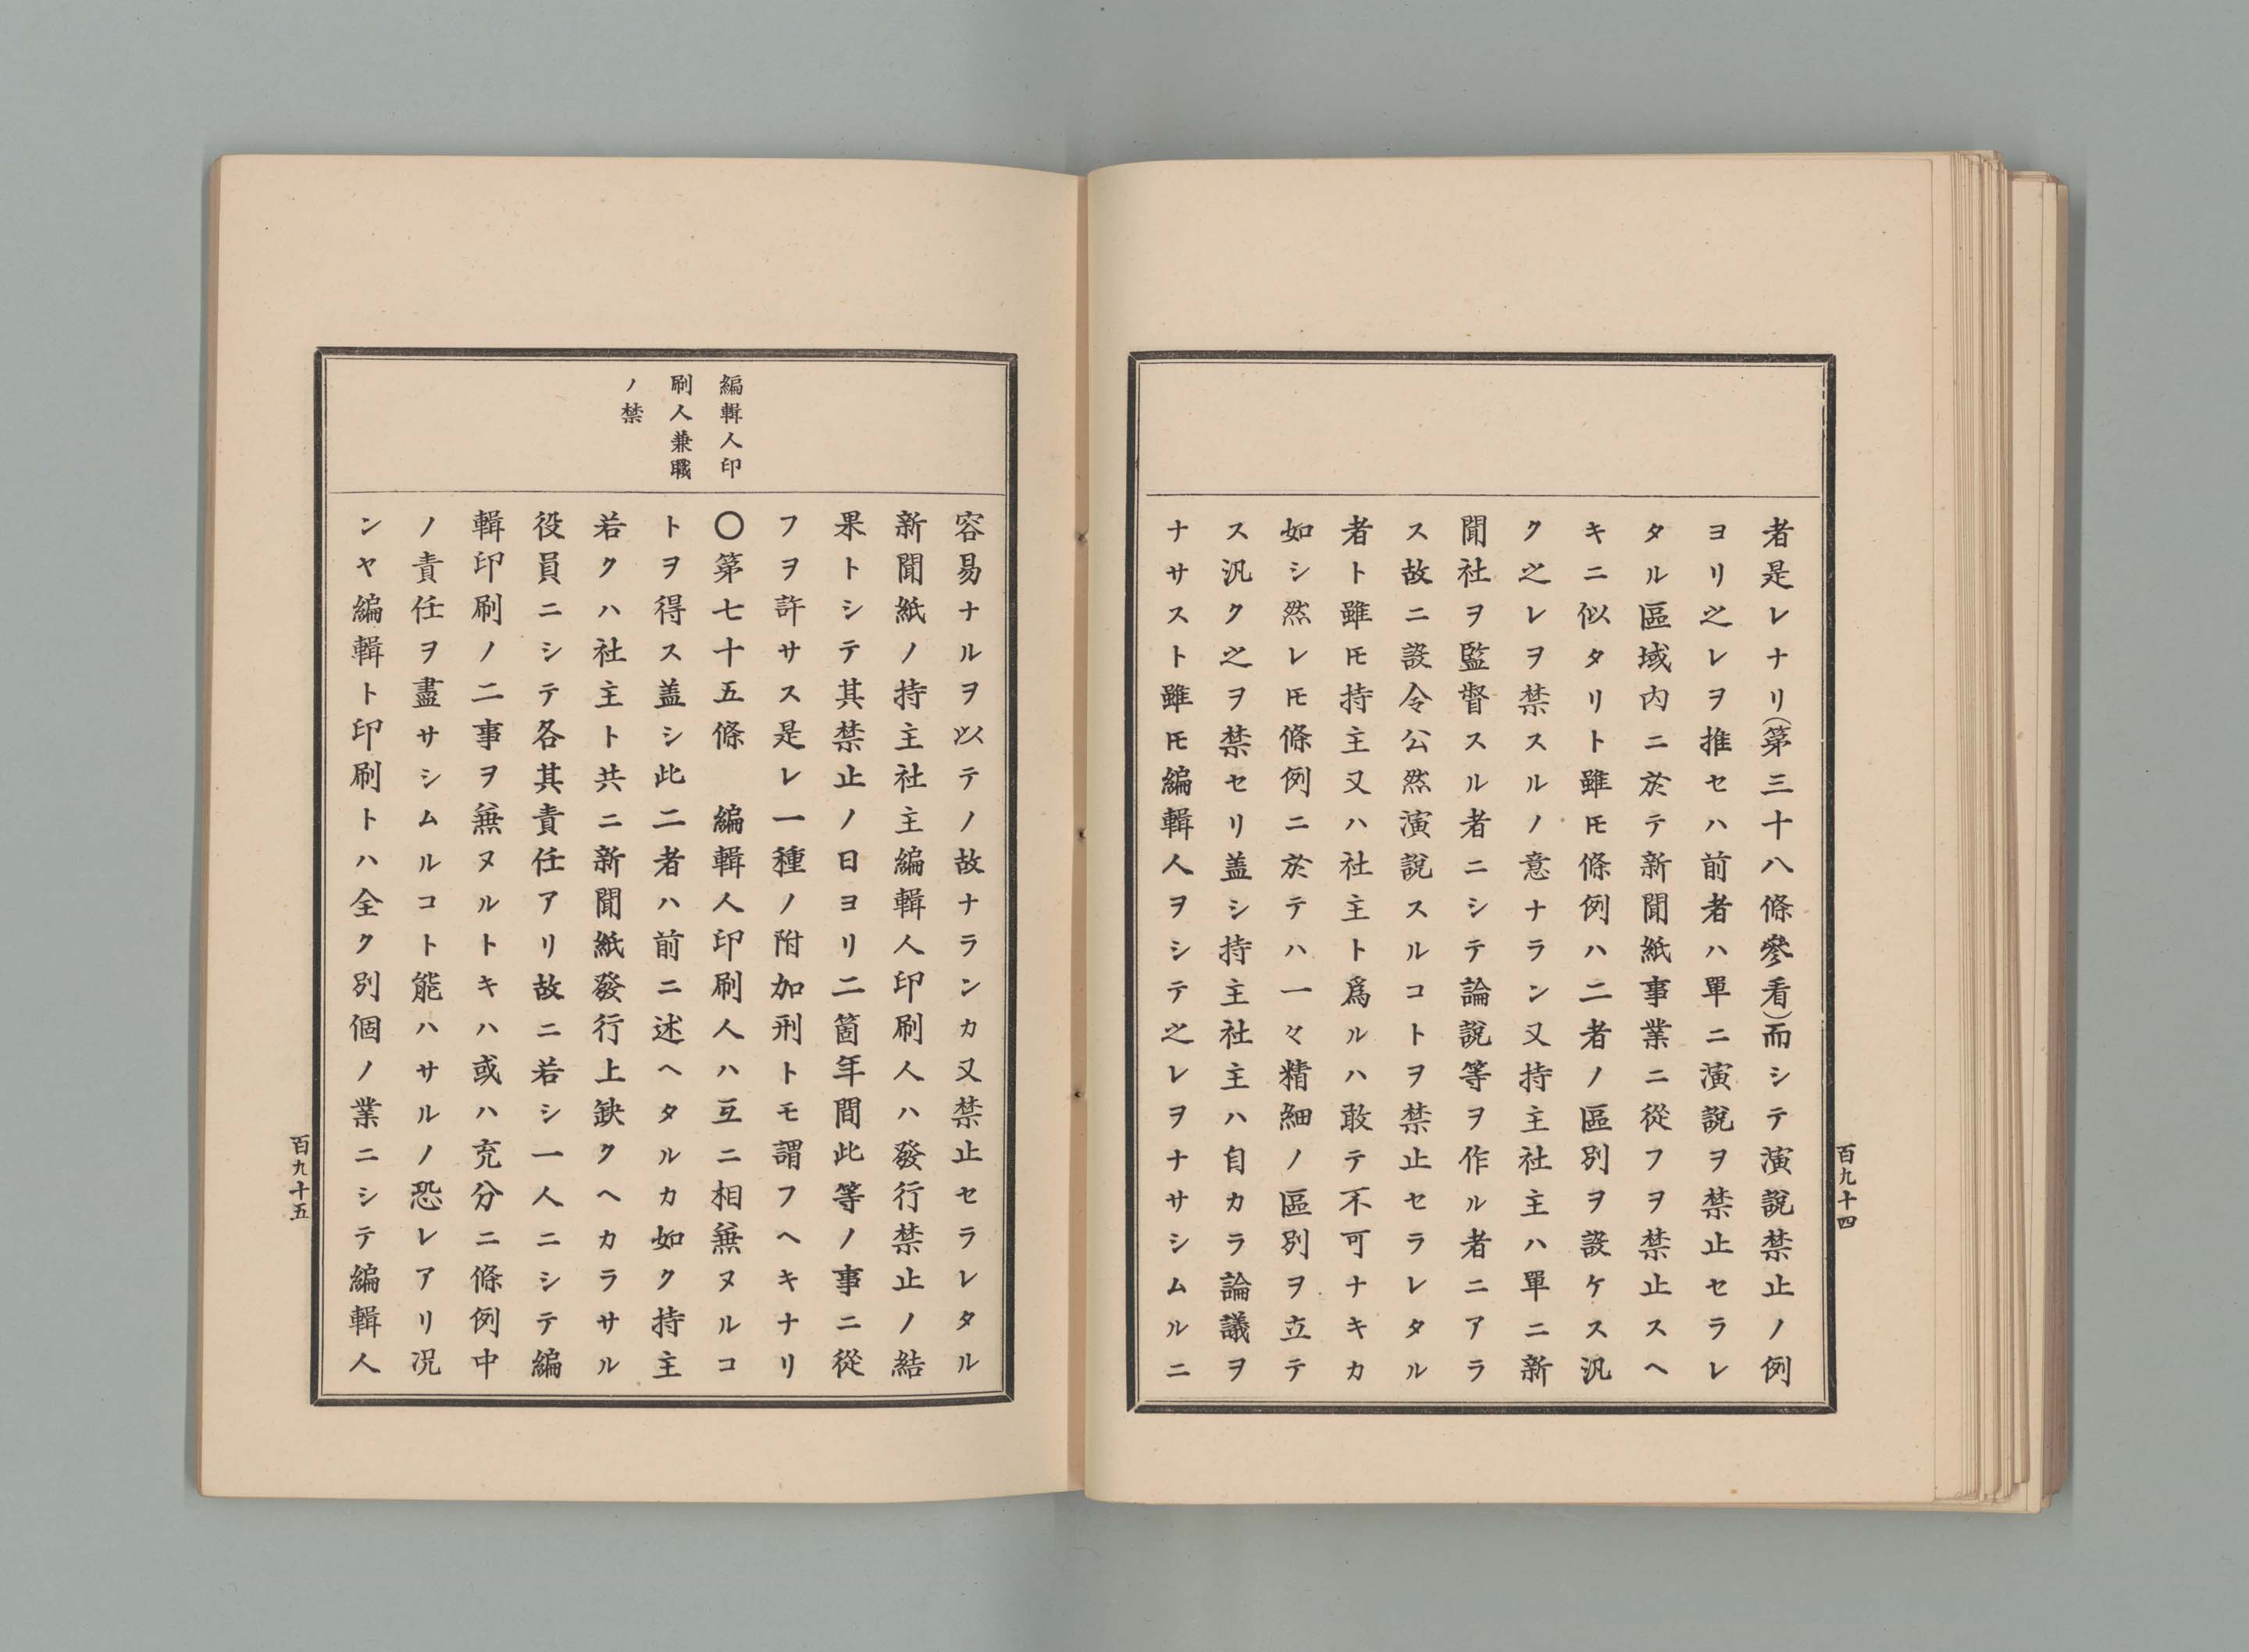 者是レナリ(第三十八條參看)而シテ演說禁止ノ例
ヨリ之レヲ推セハ前者ハ單ニ演說ヲ禁止セラレ
タル區域内ニ於テ新聞紙事業ニ從フヲ禁止スヘ
キニ似タリト雖𪜈條例ハ二者ノ區別ヲ設ケス汎
ク之レヲ禁スルノ意ナラン又持主社主ハ單ニ新
聞社ヲ監督スル者ニシテ論說等ヲ作ル者ニアラ
ス故ニ設令公然演說スルコトヲ禁止セラレタル
者ト雖𪜈持主又ハ社主ト爲ルハ敢テ不可ナキカ
如シ然レ𪜈條例ニ於テハ一々精細ノ區別ヲ立テ
ス汎ク之ヲ禁セリ盖シ持主社主ハ自カラ論議ヲ
ナサスト雖𪜈編輯人ヲシテ之レヲナサシムルニ
百九十四
編輯人印
刷人兼職
ノ禁
容易ナルヲ以テノ故ナランカ又禁止セラレタル
新聞紙ノ持主社主編輯人印刷人ハ發行禁止ノ結
果トシテ其禁止ノ日ヨリ二箇年間此等ノ事ニ從
フヲ許サス是レ一種ノ附加刑トモ謂フヘキナリ
〇第七十五條　編輯人印刷人ハ互ニ相兼ヌルコ
トヲ得ス盖シ此二者ハ前ニ述ヘタルカ如ク持主
若クハ社主ト共ニ新聞紙發行上缺クヘカラサル
役員ニシテ各其責任アリ故ニ若シ一人ニシテ編
輯印刷ノ二事ヲ兼ヌルトキハ或ハ充分ニ條例中
ノ責任ヲ盡サシムルコト能ハサルノ恐レアリ况
ンヤ編輯ト印刷トハ全ク別個ノ業ニシテ編輯人
百九十五